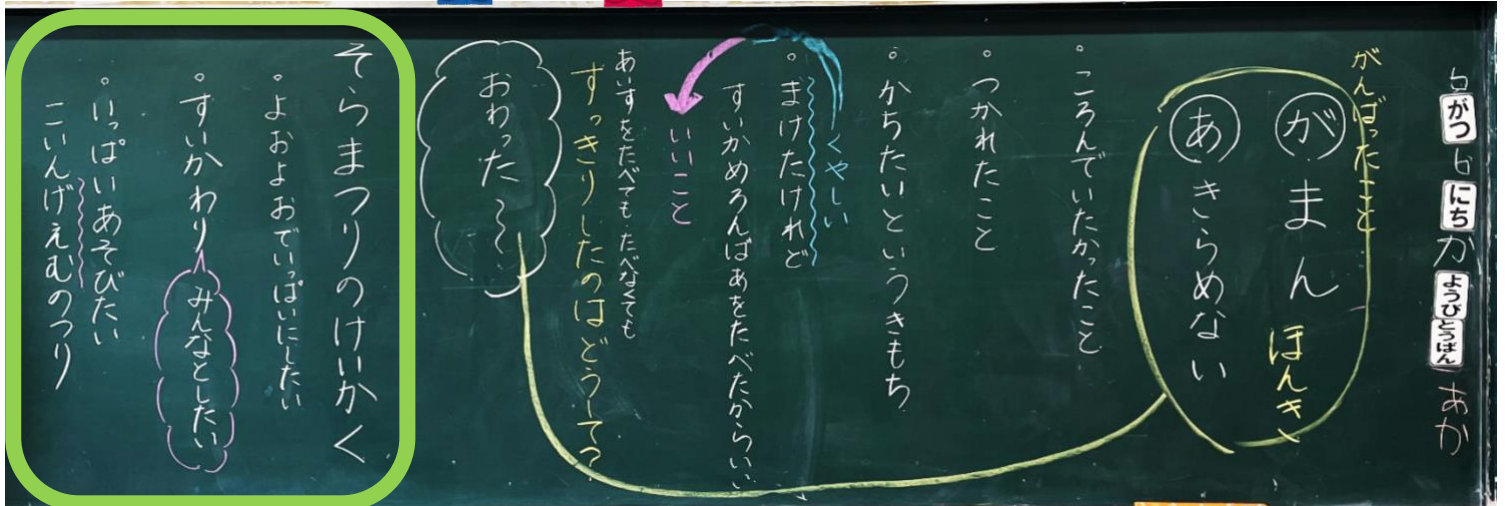 5がつ6にちかようびとうばんあか
がんばったこと
がまん ほんき
あきらめない
。ころんでいたかったこと
。つかれたこと
。かちたいというきもち
くやしい
。まけたけれど
すいかめろんばあをたべたからいい
いいこと
あいすをたべても、たべなくても
すっきりしたのはどうして?
おわった〜
そらまつりのけいかく
。よおよおでいっぱいにしたい
。すいかわり
みんなとしたい
。いっぱいあそびたい
こいんげえむのつり